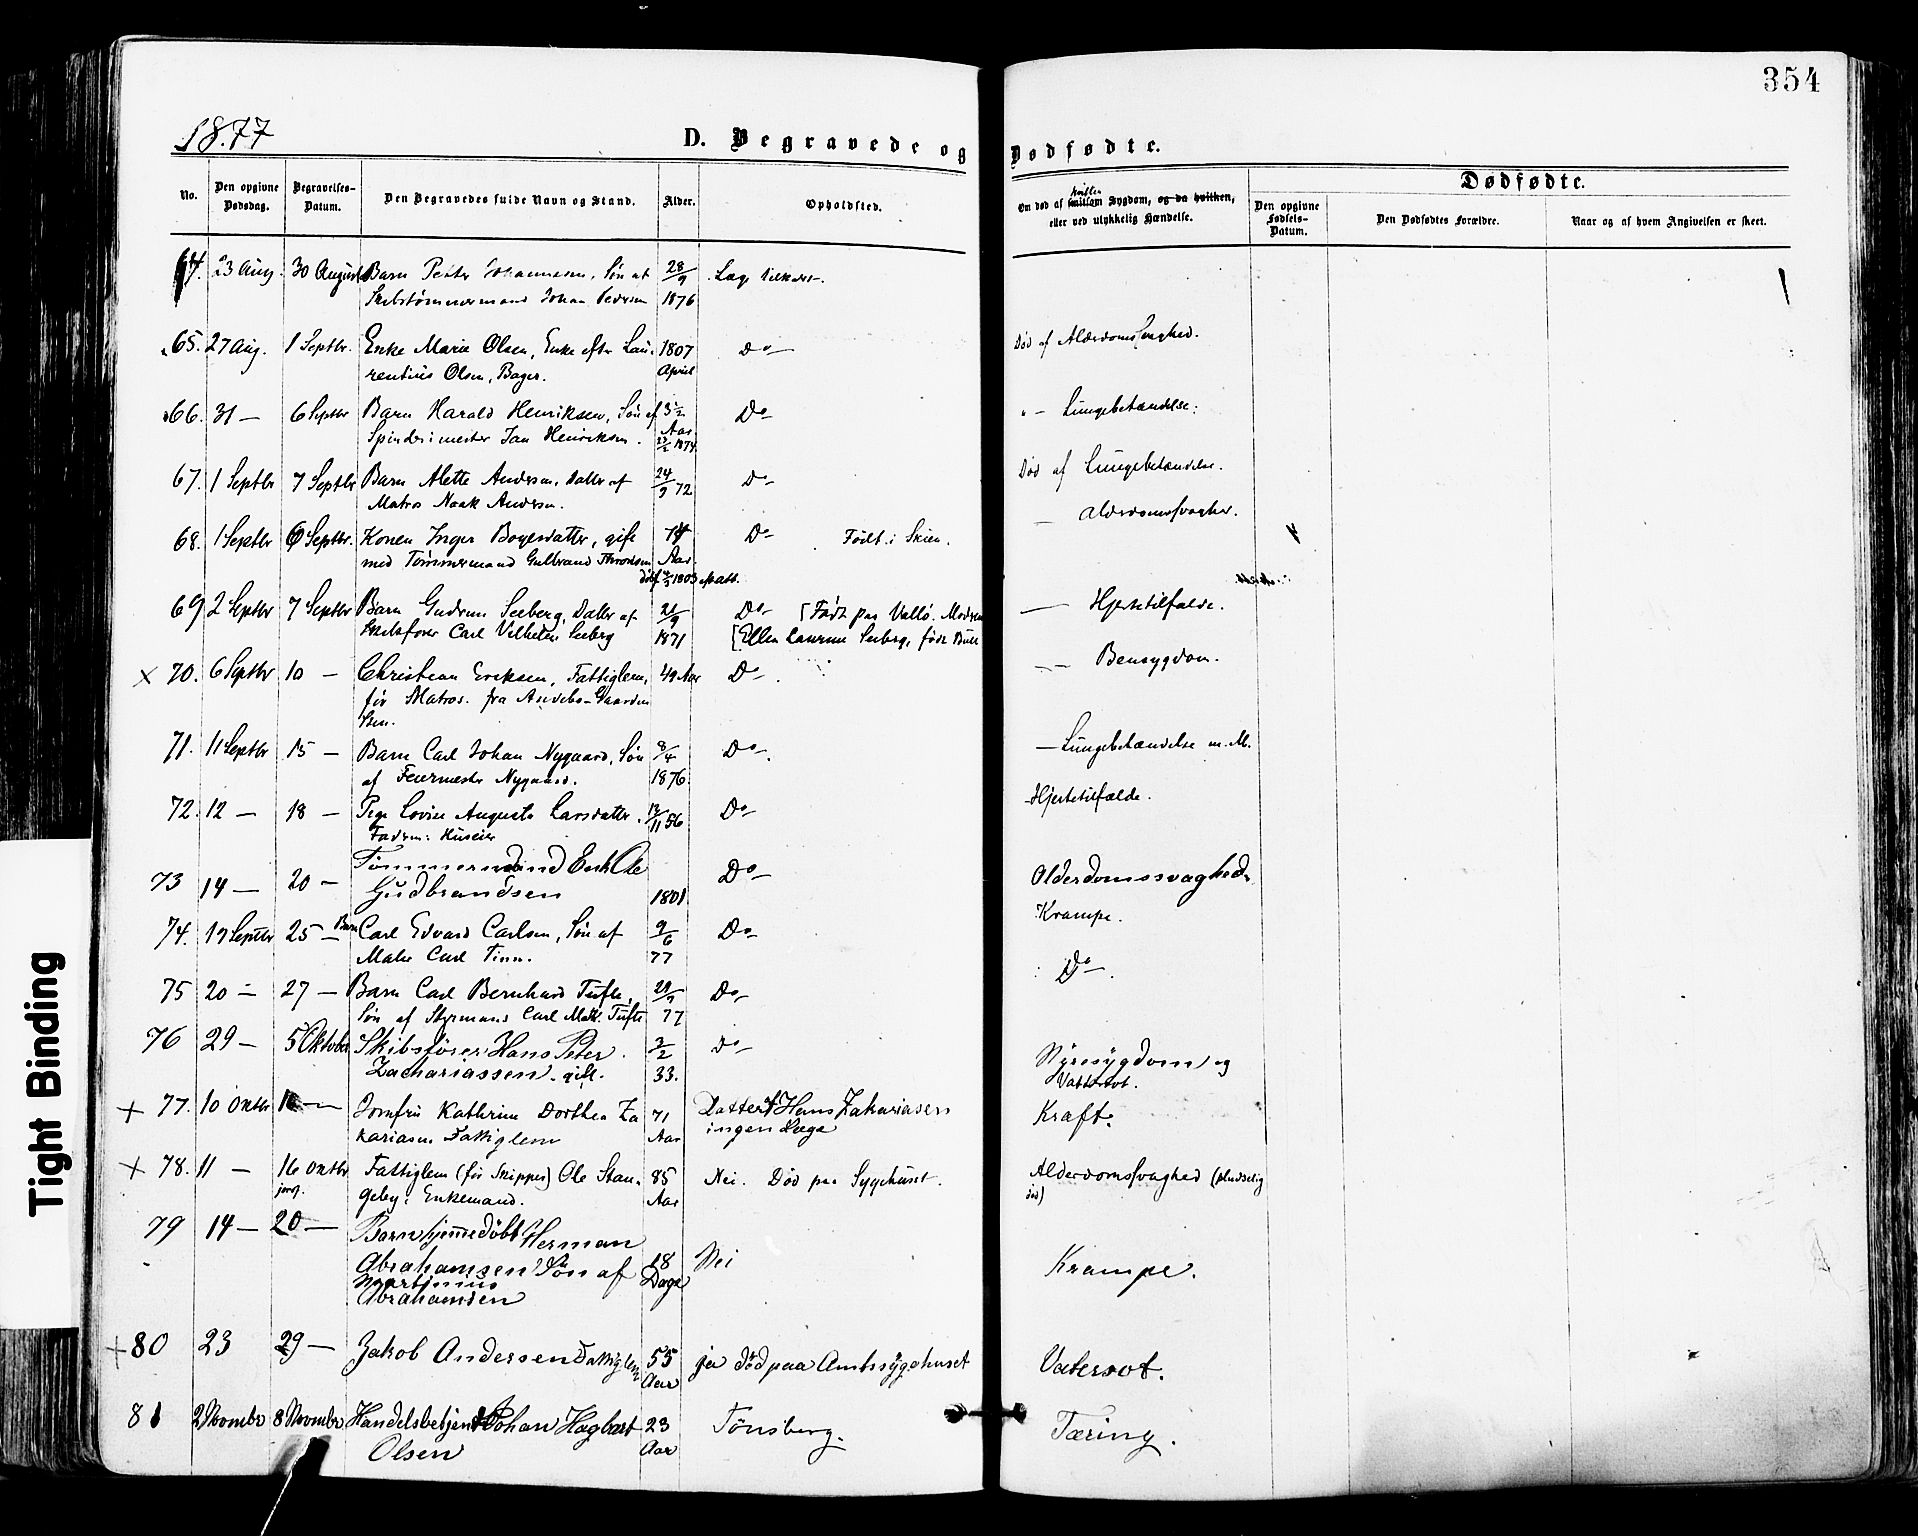 354
1877
D. Begravede og Dødfødte.
No.
Den opgivne Dødsdag.
Begravelses-Datum.
Den Begravedes fulde Navn og Stand.
Alder.
Opholdsted.
Om død af hvilken Sygdom, og da hvilken,
eller ved ulykkelig Hændelse.
Dødfødte.
Den opgivne Fødsels-Datum.
Den Dødfødtes Forældre.
Naar og af hvem Angivelsen er skeet.
64. 23 Aug. 30 August Barn Peter Johannesen, Søn af 28/9
Skibstømmermand Johan Pedersen 1876
65. 27 Aug. 1 Septbr. Enke Marie Olsen, Enke efter Lau- 1807 Do Død af Alderdomssvaghed.
rentius Olsen, Bager. April
66. 31 — 6 Septbr Barn Harald Henriksen, Søn af 3½ Do " — Lungebetændelse.
Spinderimester Jan Henriksen. Aar
67. 1 Septbr 7 Septbr Barn Alette Andersen, Datter af 24/9 72 Do Død af Lungebetændelse.
Matros Noak Andersen.
68. 1 Septbr 6 Septbr. Konen Inger Boyesdatter, gift 74 Do Født i Skien. — Alderdomssvaghed.
med Tømmermand Gulbrand Throndsen Aar
69 2 Septbr 7 Septbr Barn Gudrun Seeberg, Datter af 21/9 Do [Født paa Vallø. Moderen — Hjertetilfælde.
Skibsfører Carl Vilhelm Seeberg 1871 [Ellen Laurine Seeberg, født Bull
x 70. 6 Septbr 10 — Christian Eriksen, Fattiglem, 49 Aar Do — Bensygdom.
før Matros. fra Andebo-Gaarden
71. 11 Septbr 15 — Barn Carl Johan Nygaard, Søn 8/4 Do — Lungebetændelse m. M.
af Feiermester Nygaard. 1876.
72. 12 — 18 — Pige Lovise Augusta Larsdatter. 13/11 56 Do Hjertetilfælde.
Faderen: Huseier
73 14 — 20 — Tømmermand Enk Ole Do Alderdomssvaghed.
Gudbrandsen 1801
74. 19 Septbr 25 — Barn Carl Edvard Carlsen, Søn af 9/6 Do Krampe.
Maler Carl Finn. 77
75 20 — 27 — Barn Carl Bernhard Tufte, 29/7 Do Do
Søn af Styrmand Carl Math. Tufte 77
76 29 — 5 Oktober Skibsfører Hans Peter 3/2 Do Nyresygdom og
Zachariassen. gift. 33. Vattersot.
+ 77. 10 Oktbr 16 — Jomfru Kathrine Dorthea Za 71 Datter af Hans Zakariasen Kræft.
kariasen Fattiglem Aar ingen Læge
+ 78. 11 — 16 Oktbr Fattiglem (før Skipper) Ole Stan- 85 Nei. Død paa Sygehuset. Alderdomssvaghed (pludselig
jorf. geby. Enkemand. Aar død)
79 14 — 20 — Barn hjemmedöbt Herman
Abrahamsen Søn af 18 Nei Krampe.
Martinius Dage
Abrahamsen
+ 80 23 29 — Jakob Andersen Fattiglem 55 ja død paa Amtssygehuset Vatersot.
Aar
81 2 Novmbr 8 Novmbr Handelsbetjent Johan Hagbart 23 Tönsberg. Tæring.
Olsen Aar
Tight Binding